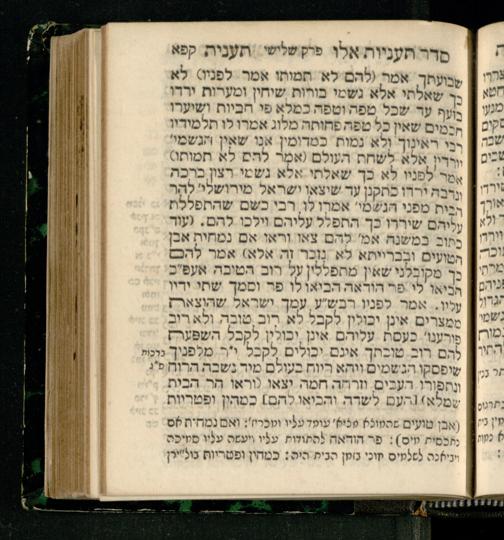 סדר תעניות אלו פרק שלישי תענית קפא
שבועתך אמר (להם לא תמותו אמר לפניו) לא
כך שאלתי אלא גשמי בורות שיחין ומערות ירדו
בזעף עד שכל טפה וטפה כמלא פי חבית ושיערו
חכמים שאין כל טפה פחותה מלוג אמרו לו תלמידיו
רבי ראינוך ולא נמות כמדומין אנו שאין הגשמי'
יורדין אלא לשחת העולם (אמר להם לא תמותו)
אמר לפניו לא כך שאלתי אלא גשמי רצון ברכה
ונדבה ירדו כתקנן עד שיצאו ישראל מירושלי' להר
הבית מפני הגשמי' אמרו לו רבי כשם שהתפללת
עליהם שירדו כך התפלל עליהם וילכו להם. (עוד
כתוב במשנה אמ' להם צאו וראו אם נמחית אבן
הטועים ובברייתא לא נזכר זה אלא) אמר להם
כך מקובלני שאין מתפללין על רוב הטובה אעפ"כ
הביאו לי פר הודאה הביאו לו פר וסמך שתי ידיו
עליו. אמר לפניו רבש"ע עמך ישראל שהוצאת
ממצרים אינן יכולין לקבל לא רוב טובה ולא רוב
פורענו' כעסת עליהם אינן יכולין לקבל השפעת
להם רוב טובתך אינם יכולים לקבל י"ר מלפניך
שיפסקו הגשמים ויהא ריוח בעולם מיד נשבה הרוח
ונתפזרו העבים וזרחה חמה יצאו (וראו הר הבית
שמלא) [העם לשדה והביאו להם] כמהין ופטריות
ברכות
(אבן טועים שהמוצא מציא' עומד עליו ומכריז: ואם נמחית אם
נתכסית מים): פר הודאה להתודות עליו ויעשה עליו סמיכה